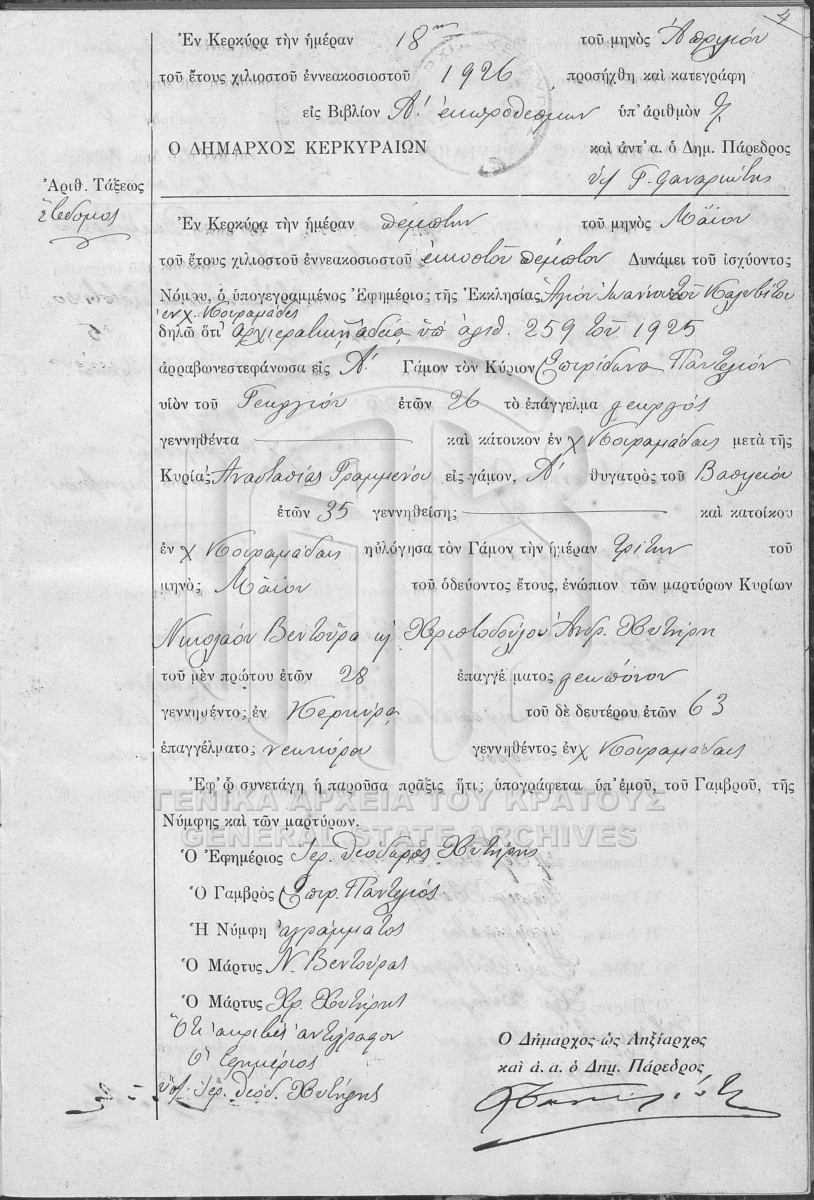 4
Ἐν Κερκύρᾳ τὴν ἡμέραν 18ην τοῦ μηνὸς Ἀπριλίου
τοῦ ἔτους χιλιοστοῦ ἐννεακοσιοστοῦ 1926 προσήχθη καὶ κατεγράφη
εἰς Βιβλίον Α! ἐκπροθέσμων ὑπ' ἀριθμὸν 7
Ο ΔΗΜΑΡΧΟΣ ΚΕΡΚΥΡΑΙΩΝ καὶ ἀντ' α. ὁ Δημ. Πάρεδρος
Γ. Φαναριώτης
Ἀριθ. Τάξεως
ἕβδομος
Ἐν Κερκύρᾳ τὴν ἡμέραν πέμπτην τοῦ μηνὸς Μαΐου
τοῦ ἔτους χιλιοστοῦ ἐννεακοσιοστοῦ εἰκοστοῦ πέμπτου Δυνάμει τοῦ ἰσχύοντος
Νόμου, ὁ ὑπογεγραμμένος Ἐφημέριος τῆς Ἐκκλησίας Ἁγίου Ἰωάννου τοῦ Καλυβίτου
ἐν χ. Κοιραμάδες
δηλῶ ὅτι ἀρχιερατικῇ ἀδείᾳ ὑπ' ἀριθ. 259 τοῦ 1925
ἀρραβωνεστεφάνωσα εἰς Α! Γάμον τὸν Κύριον Σπυρίδωνα Παντελιόν
υἱὸν τοῦ Γεωργίου ἐτῶν 26 τὸ ἐπάγγελμα γεωργός
γεννηθέντα καὶ κάτοικον ἐν χ Κοιραμάδαις μετὰ τῆς
Κυρίας Ἀναστασίας Γραμμένου εἰς γάμον, Α! θυγατρὸς τοῦ Βασιλείου
ἐτῶν 35 γεννηθείσης καὶ κατοίκου
ἐν χ Κοιραμάδαις ηὐλόγησα τὸν Γάμον τὴν ἡμέραν τρίτην τοῦ
μηνὸς Μαΐου τοῦ ὁδεύοντος ἔτους, ἐνώπιον τῶν μαρτύρων Κυρίων
Νικολάου Βεντούρα κ Χριστοδούλου Ἀνδρ. Χυτήρη
τοῦ μὲν πρώτου ἐτῶν 28 ἐπαγγέλματος γεωπόνου
γεννηθέντος ἐν Κερκύρᾳ τοῦ δὲ δευτέρου ἐτῶν 63
ἐπαγγέλματος γεννηθέντος ἐν χ Κοιραμάδαις
Ἐφ' ᾧ συνετάγη ἡ παροῦσα πρᾶξις ἥτις ὑπογράφεται ὑπ' ἐμοῦ, τοῦ Γαμβροῦ, τῆς
Νύμφης καὶ τῶν μαρτύρων.
ΓΕΝΙΚΑ ΑΡΧΕΙΑ ΤΟΥ ΚΡΑΤΟΥΣ
GENERAL STATE ARCHIVES
Ὁ Ἐφημέριος Ἱερ. Θεόδωρος Χυτήρης
Ὁ Γαμβρὸς Σπυρ. Παντελιός
Ἡ Νύμφη ἀγράμματος
Ὁ Μάρτυς Ν. Βεντούρας
Ὁ Μάρτυς Χρ. Χυτήρης
Ὅτι ἀκριβὲς ἀντίγραφον
Ὁ Ἐφημέριος
ὑπ. Ἱερ. Θεόδ. Χυτήρης
Ὁ Δήμαρχος ὡς Ληξίαρχος
καὶ ἀ. α. ὁ Δημ. Πάρεδρος